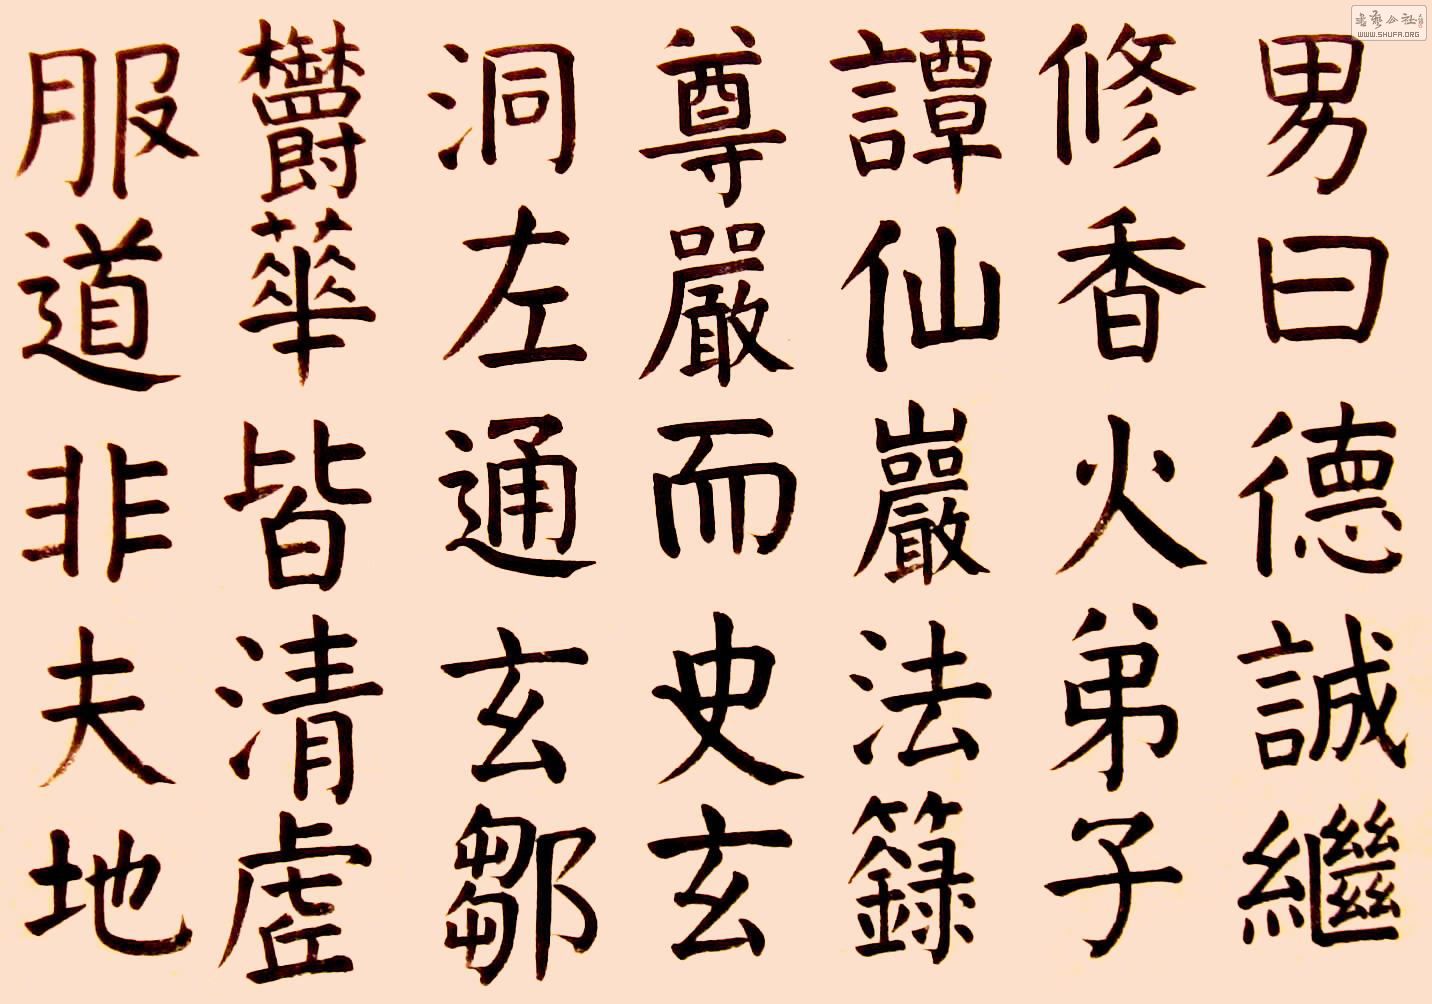 男曰德誠繼
修香火弟子
譚仙巖法籙
尊嚴而史玄
洞左通玄鄒
欎華皆清虗
服道非夫地
書藝公社
WWW.SHUFA.ORG